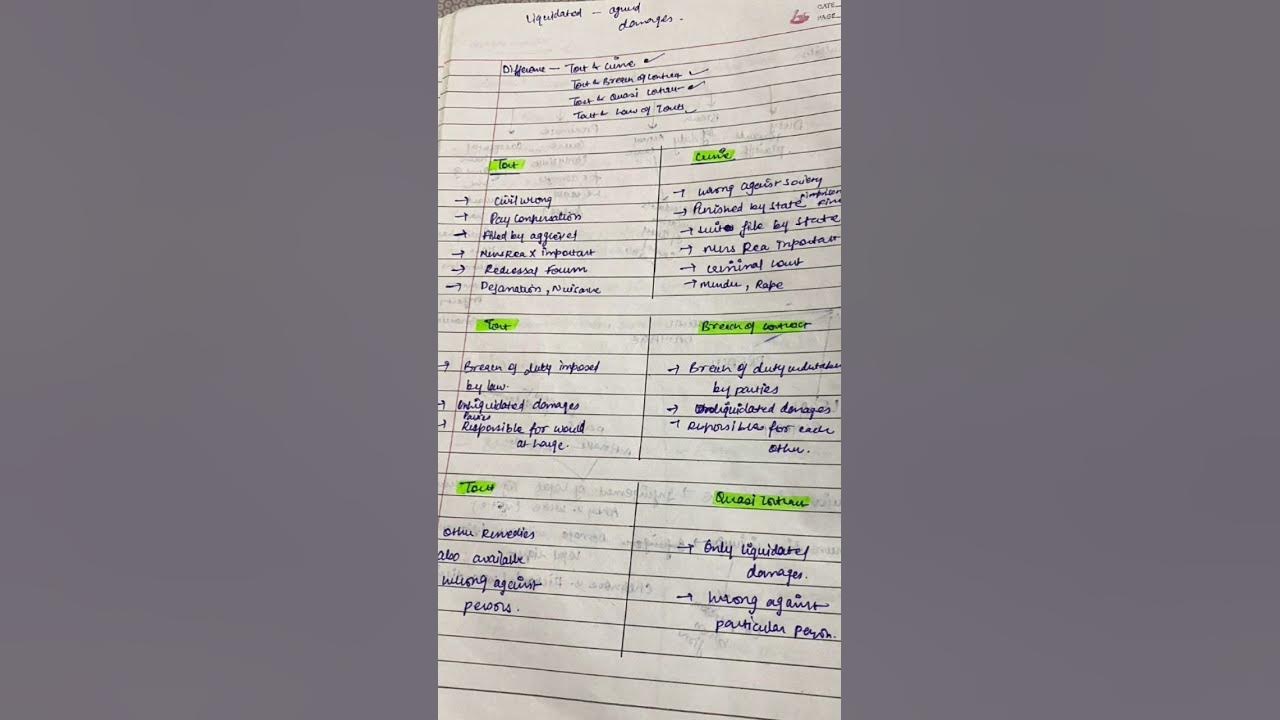 Liquidated — agreed
damages.
DATE
PAGE
Difference — Tort & Crime ✓
Tort & Breach of Contract ✓
Tort & Quasi Contract ✓
Tort & Law of Torts ✓
Tort
Crime
→ Civil wrong
→ wrong against society
→ Pay Compensation
→ Punished by State
→ Filed by aggrieved
→ suit file by State
→ Mens Rea X important
→ Mens Rea Important
→ Redressal Forum
→ Criminal Court
→ Defamation, Nuisance
→ Murder, Rape
Tort
Breach of Contract
→ Breach of duty imposed
by law.
→ Breach of duty undertaken
by parties
→ Unliquidated damages
→ liquidated damages
→ Parties
Responsible for world
at large.
→ Responsible for each
other.
Tort
Quasi Contract
Other Remedies
also available
→ Only liquidated
damages.
wrong against
persons.
→ Wrong against
particular person.